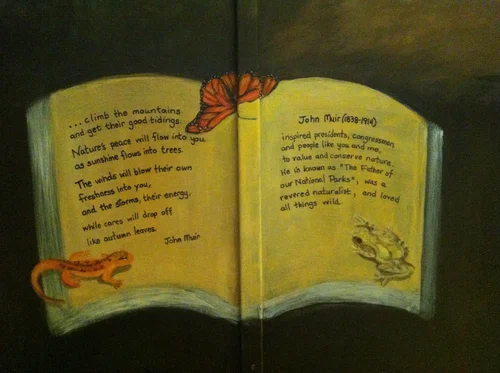 ...climb the mountains
and get their good tidings.
Nature's peace will flow into you
as sunshine flows into trees.
The winds will blow their own
freshness into you,
and the storms, their energy,
while cares will drop off
like autumn leaves.
John Muir
John Muir (1838-1914)
inspired presidents, congressmen
and people like you and me,
to value and conserve nature.
He is known as "The Father of
our National Parks", was a
revered naturalist, and loved
all things wild.